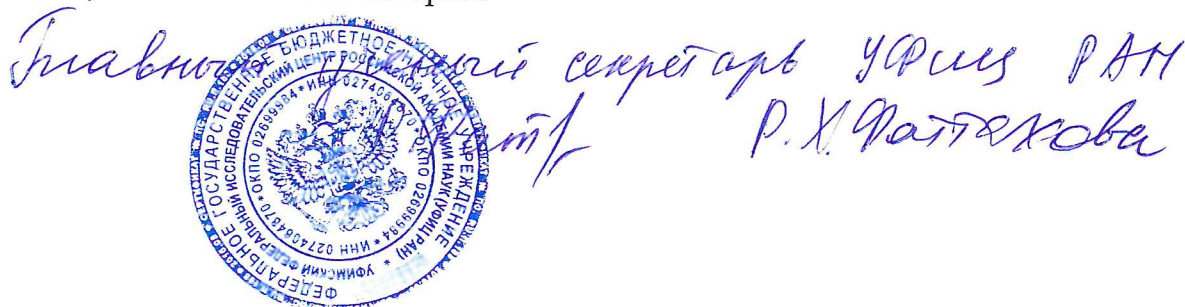 Главный ученый секретарь УФИЦ РАН
Р.Х. Фаттахова
ФЕДЕРАЛЬНОЕ ГОСУДАРСТВЕННОЕ БЮДЖЕТНОЕ НАУЧНОЕ УЧРЕЖДЕНИЕ
УФИМСКИЙ ФЕДЕРАЛЬНЫЙ ИССЛЕДОВАТЕЛЬСКИЙ ЦЕНТР РОССИЙСКОЙ АКАДЕМИИ НАУК (УФИЦ РАН) *
* ИНН 0274064870 * ОКПО 02699984 * ИНН 0274064870 * ОКПО 02699984